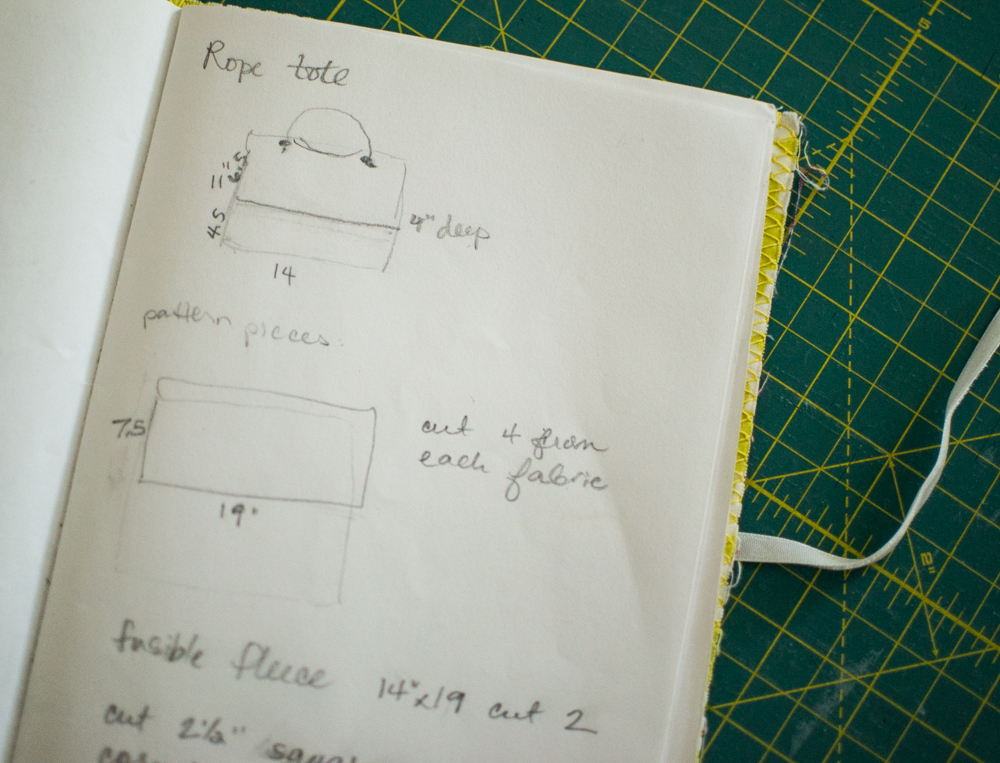 Rope tote
11"
6.5
4.5
4" deep
14
pattern pieces.
7.5
cut 4 from
each fabric
19"
fusible fleece 14"x19 cut 2
cut 2½"
5
2"